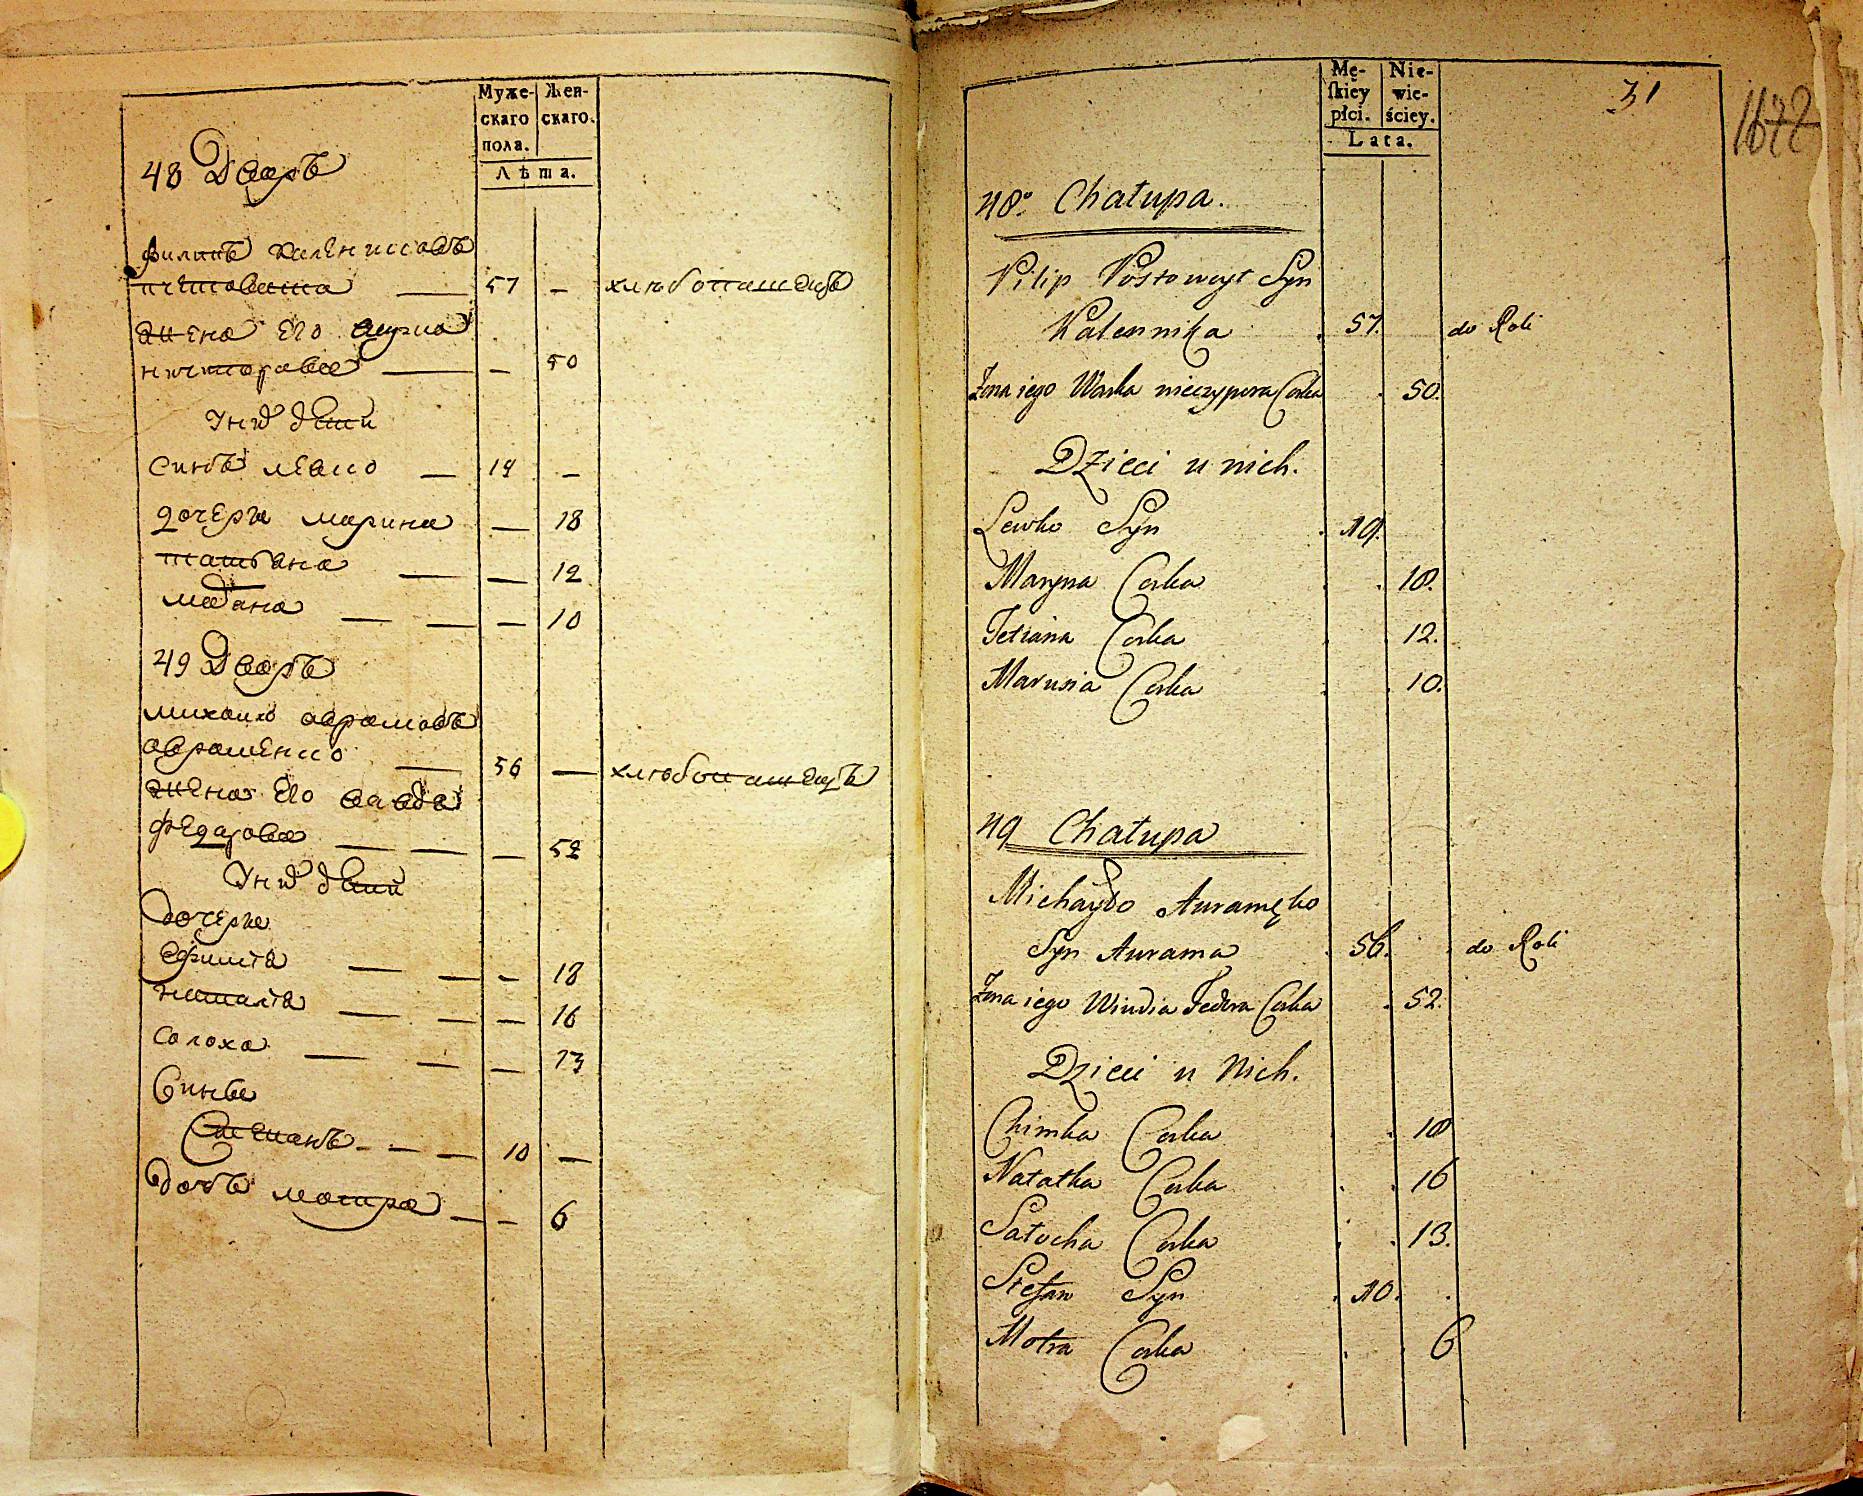 Муже-
скаго
пола.
Жен-
скаго.
Лѣта.
48 Дворъ
филипъ каленисовъ
57 — хлѣбопашецъ
жена его
— 50
У них дети
синъ левко — 14 —
дочери марина — 18
татияна — — 12
— — — 10
49 Дворъ
михаило аврамовъ
авраменко — 56 — хлѣбопашецъ
жена его
федорова — — — 52
У них дети
дочери
— — — 18
наталя — — — 16
солоха — — — 13
Сини
Степанъ — — — 10 —
дочъ мотря — — 6
Mę-
skiey
płci.
Nie-
wie-
ściey.
Lata.
31
48° Chałupa.
Pilip Postowoyt Syn
Kalennika 57. do Roli
Zona iego Warka nieczypora Corka 50.
Dzieci u nich.
Lewko Syn 14.
Maryna Corka 18.
Tetiana Corka 12.
Marusia Corka 10.
49 Chałupa
Michayło Auramęko
Syn Aurama 56. do Roli
Zona iego Wiwdia Fedora Corka 52.
Dzieci u Nich.
Chimka Corka 18
Natałka Corka 16
Sałocha Corka 13.
Stefan Syn 10.
Motra Corka 6